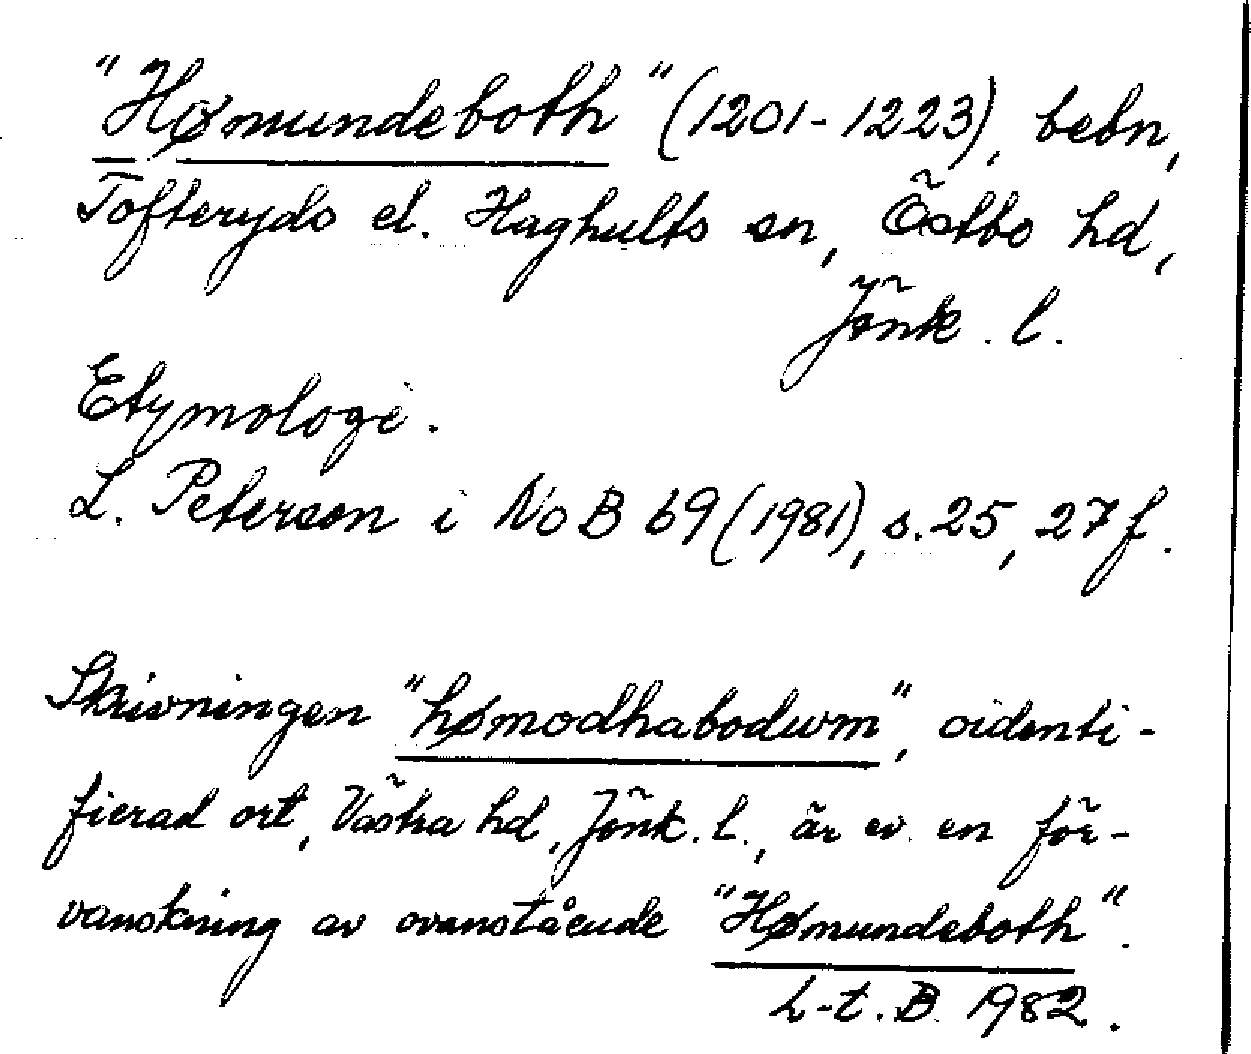 "Hømundeboth" (1201-1223), bebn,
Tofteryds el. Haghults sn, Östbo hd,
Jönk. l.
Etymologi.
L. Peterson i NoB 69 (1981), s. 25, 27 f.
Skrivningen "hømodhabodwm", oidenti-
fierad ort, Västra hd, Jönk. l., är ev. en för-
vanskning av ovanstående "Hømundeboth".
L-t. B. 1982.